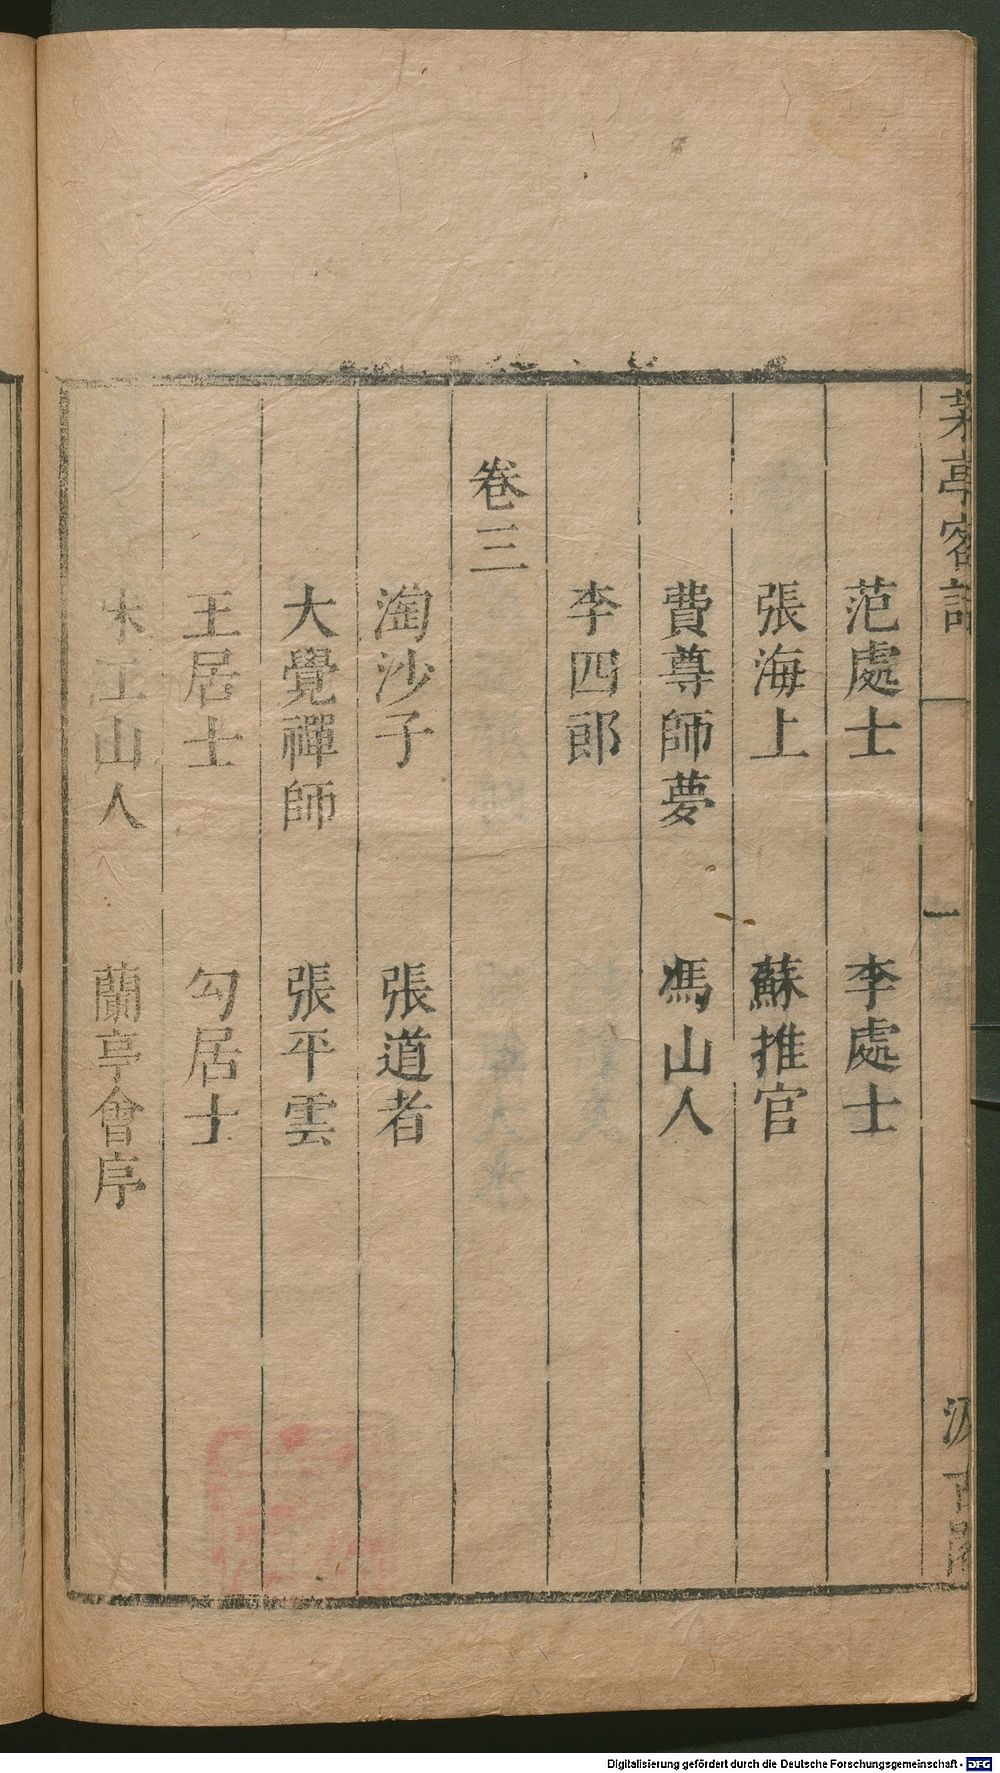 茅亭客話　一　汲古閣
范處士　李處士
張海上　蘇推官
費尊師夢　馮山人
李四郎
卷三
淘沙子　張道者
大覺禪師　張平雲
王居士　勾居士
味江山人　蘭亭會序
Digitalisierung gefördert durch die Deutsche Forschungsgemeinschaft - DFG